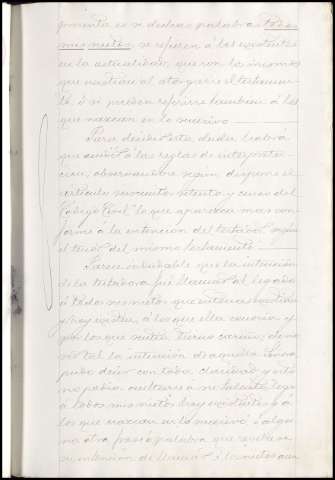 si dichas palabras todas
mis nietos, se refieren á los existentes
en la actualidad, que son los mismos
que existían al otorgarse el testamen-
to, ó se pueden referirse tambien á los
que nazcan en lo sucesivo
Para decidir esta duda habrá
que acudir á las reglas de interpreta-
cion, observandose segun dispone el
artículo seiscientos setenta y cinco del
Código Civil "lo que aparezca mas con-
forme á la intencion del testador, segun
el tenor del mismo testamento".
Parece indudable que la intencion
de la testadora fué llamar al legado
á todos sus nietos que entonces existian
y hoy existen, á los que ella conocia y
por los que sentia tierno cariño; de no
ser tal la intencion de aquella
pudo decir con toda claridad y esto
no podia ocultarse á su talento, lego
á todos mis nietos hoy existentes y á
los que nazcan en lo sucesivo ó algu-
na otra frase ó palabra que revelase
su intencion de llamar á los nietos aun